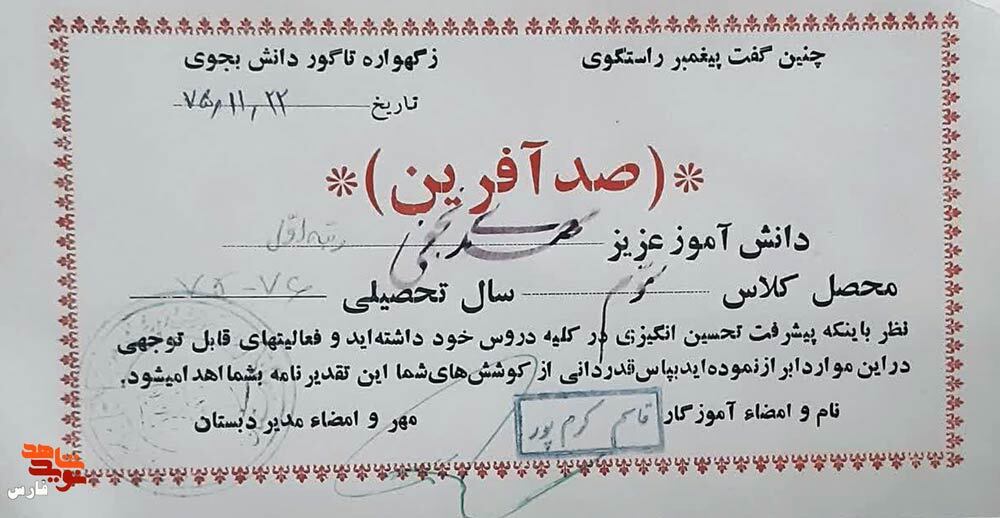 چنین گفت پیغمبر راستگوی زگهواره تاگور دانش بجوی
تاریخ ۷۵,۱۱,۲۲
*(صد آفرین)*
دانش آموز عزیز رتبه اوّل
محصل کلاس سوّم سال تحصیلی ۷۵-۷۶
نظر باینکه پیشرفت تحسین انگیزی در کلیه دروس خود داشته‌اید و فعالیتهای قابل توجهی
در این موارد ابراز نموده‌اید بپاس قدردانی از کوشش‌های شما این تقدیر نامه بشما اهدا میشود.
نام و امضاء آموزگار قاسم کرم پور مهر و امضاء مدیر دبستان
نوید شاهد
فارس